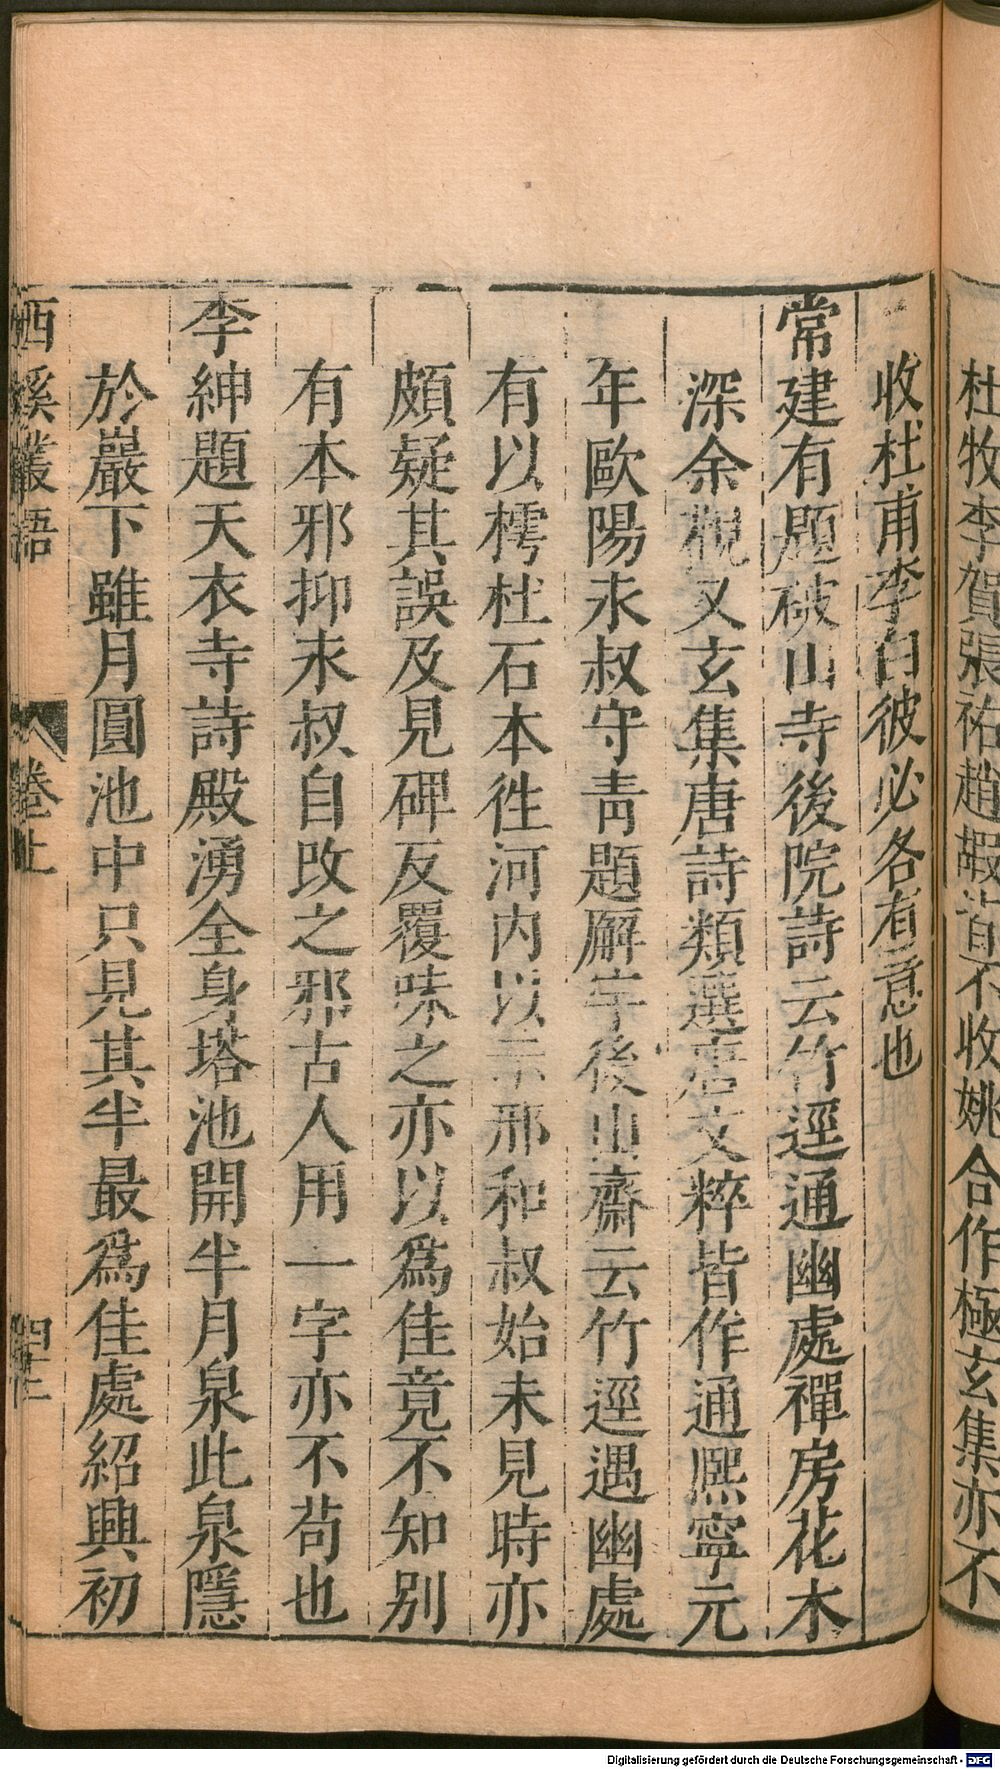 杜牧李賀張祐趙嘏皆不收姚合作極玄集亦不
收杜甫李白彼必各有意也
常建有題破山寺後院詩云竹逕通幽處禪房花木
深余觀又玄集唐詩類選唐文粹皆作通熙寧元
年歐陽永叔守青題廨宇後山齋云竹逕遇幽處
有以樗杜石本徃河内以示邢和叔始未見時亦
頗疑其誤及見碑反覆味之亦以爲佳竟不知别
有本邪抑永叔自改之邪古人用一字亦不苟也
李紳題天衣寺詩殿湧全身塔池開半月泉此泉隱
於巖下雖月圓池中只見其半最爲佳處紹興初
西溪叢語 卷上
Digitalisierung gefördert durch die Deutsche Forschungsgemeinschaft - DFG